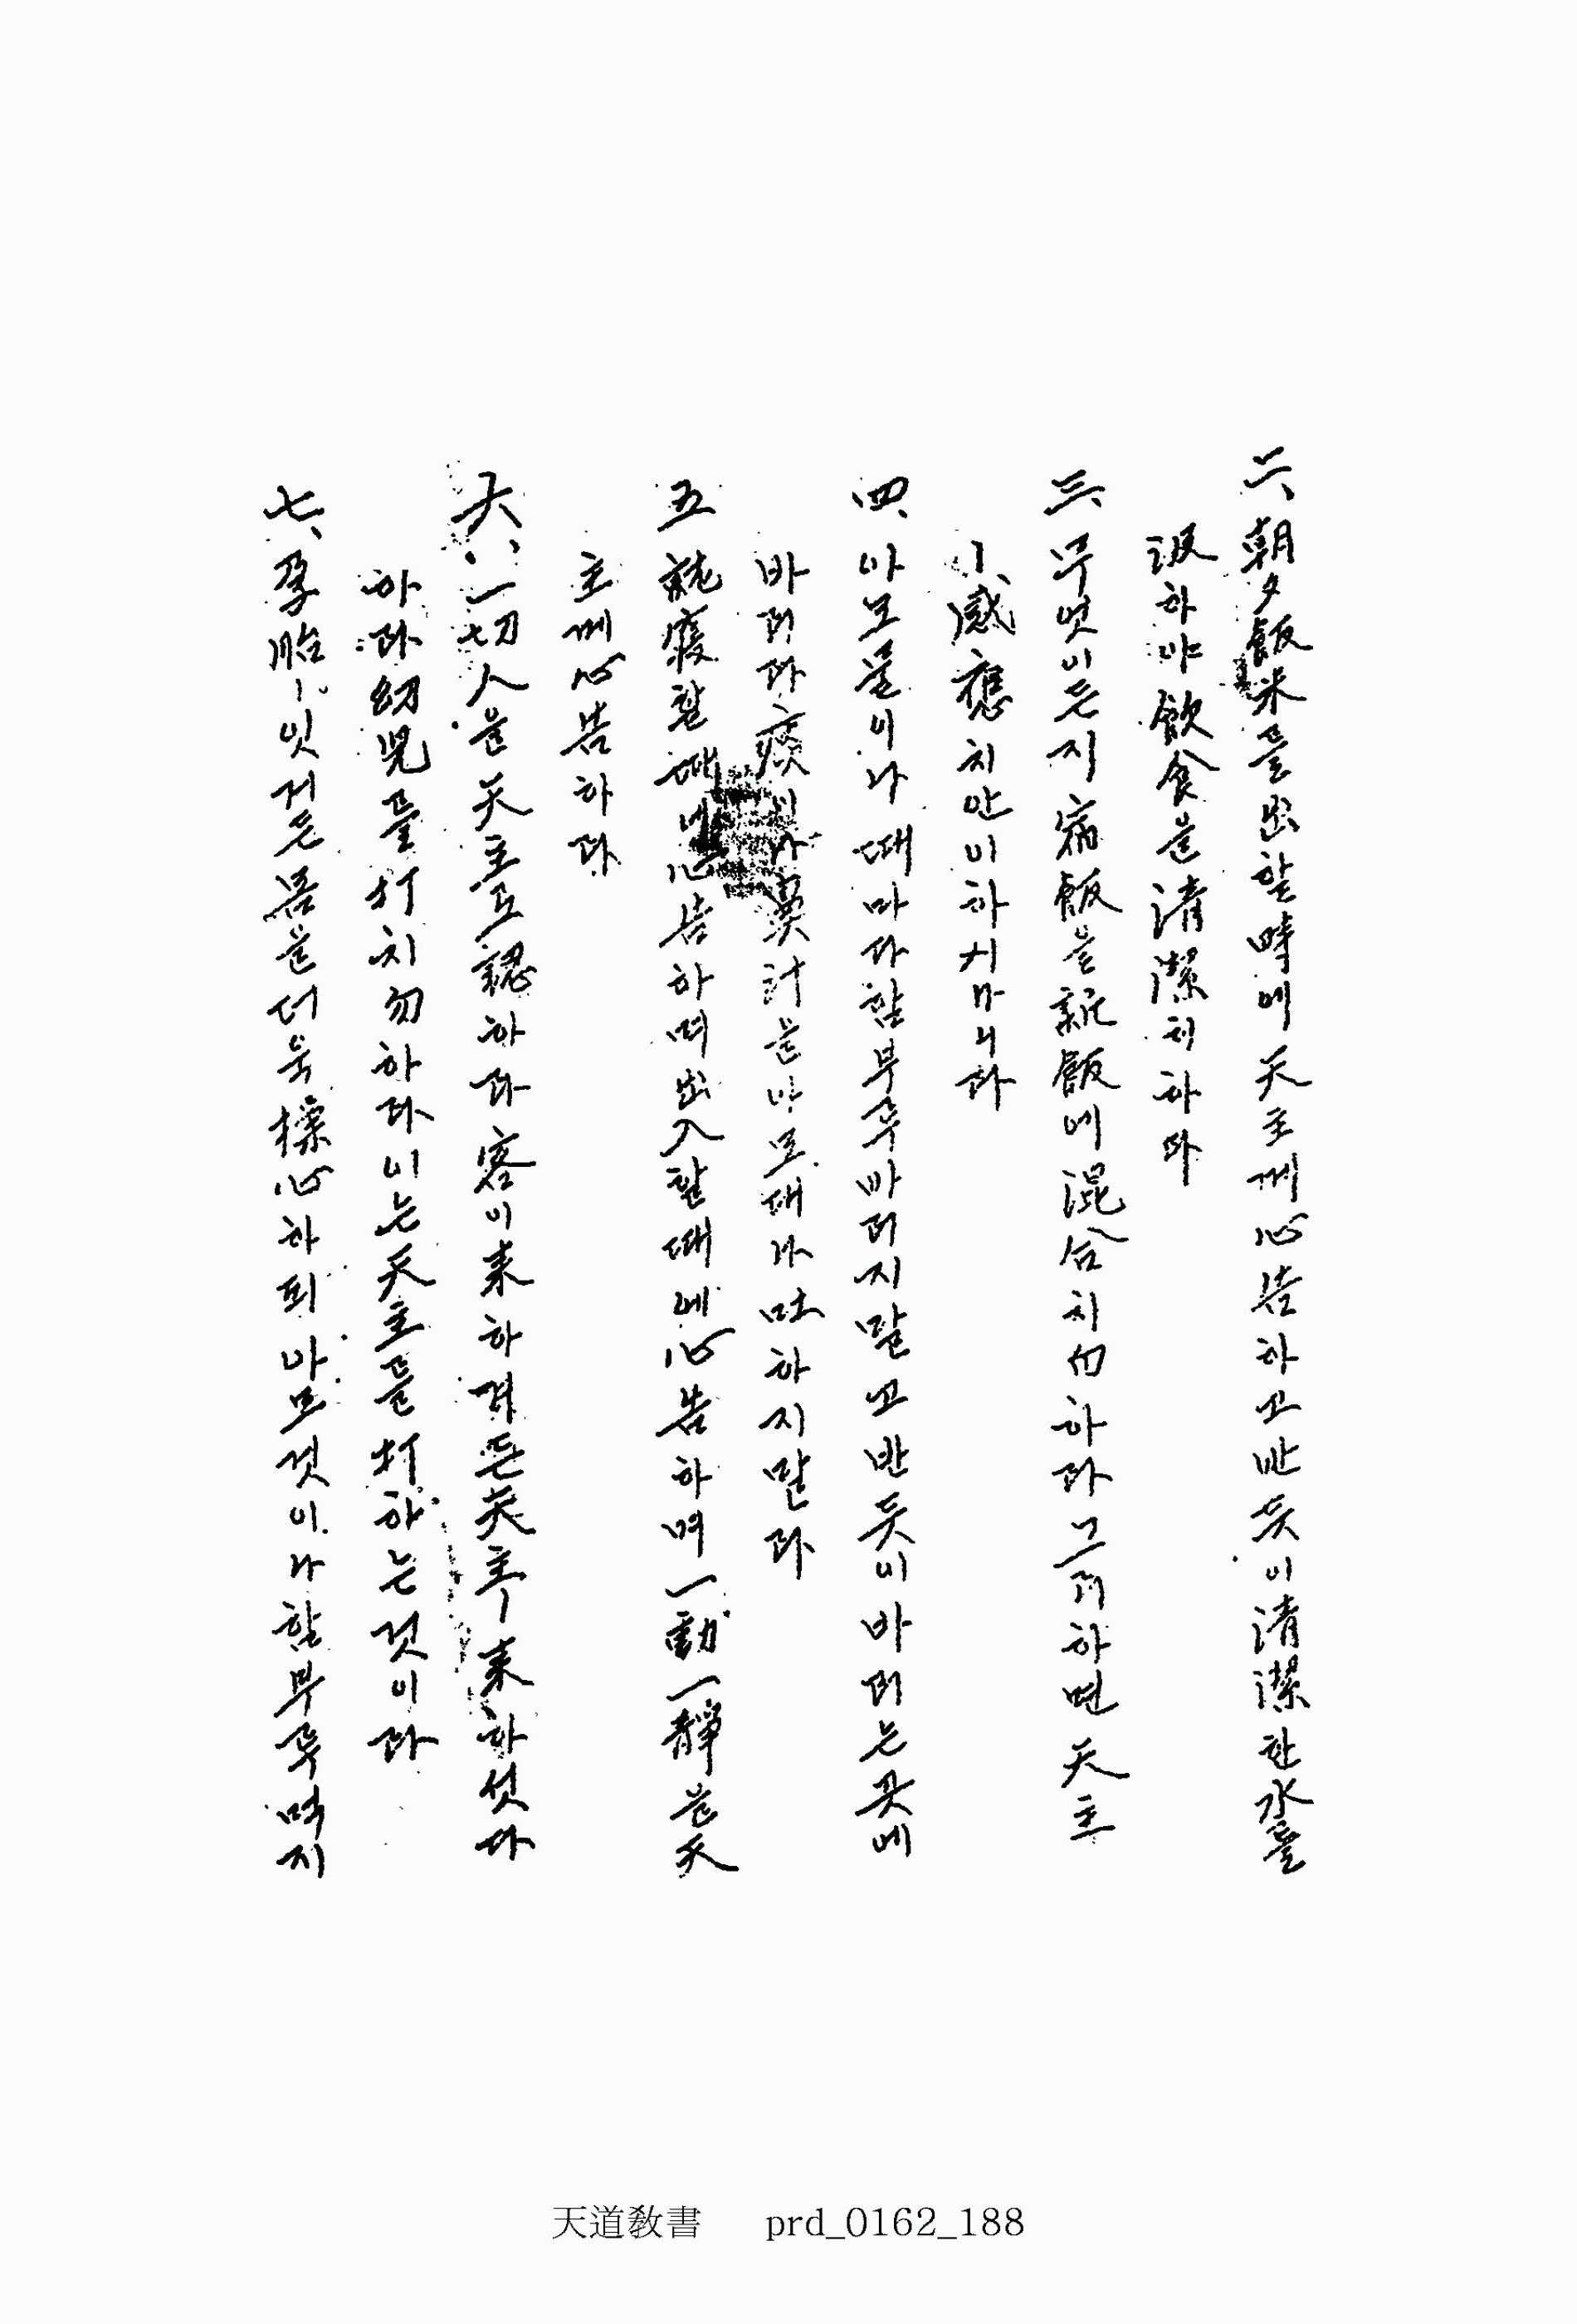 二、朝夕飯米를出할時에天主께心告하고반듯이清潔한水를
汲하야飮食을清潔히하라
三、무엇이든지宿飯을新飯에混合치勿하라그리하면天主
ㅣ感應치안이하시나니라
四、아모물이나때마다함부루바리지말고반듯이바리는곳에
바리라痰이나鼻汁을아모대나吐하지말라
五就寢할때에心告하며出入할때에心告하며一動一靜을天
主께心告하라
六、一切人을天主로認하라客이来하거든天主ㅣ来하섯다
하라幼児를打치勿하라이는天主를打하는것이라
七、孕胎ㅣ잇거든몸을더욱操心하되아모것이나함부루먹지
天道教書 prd_0162_188